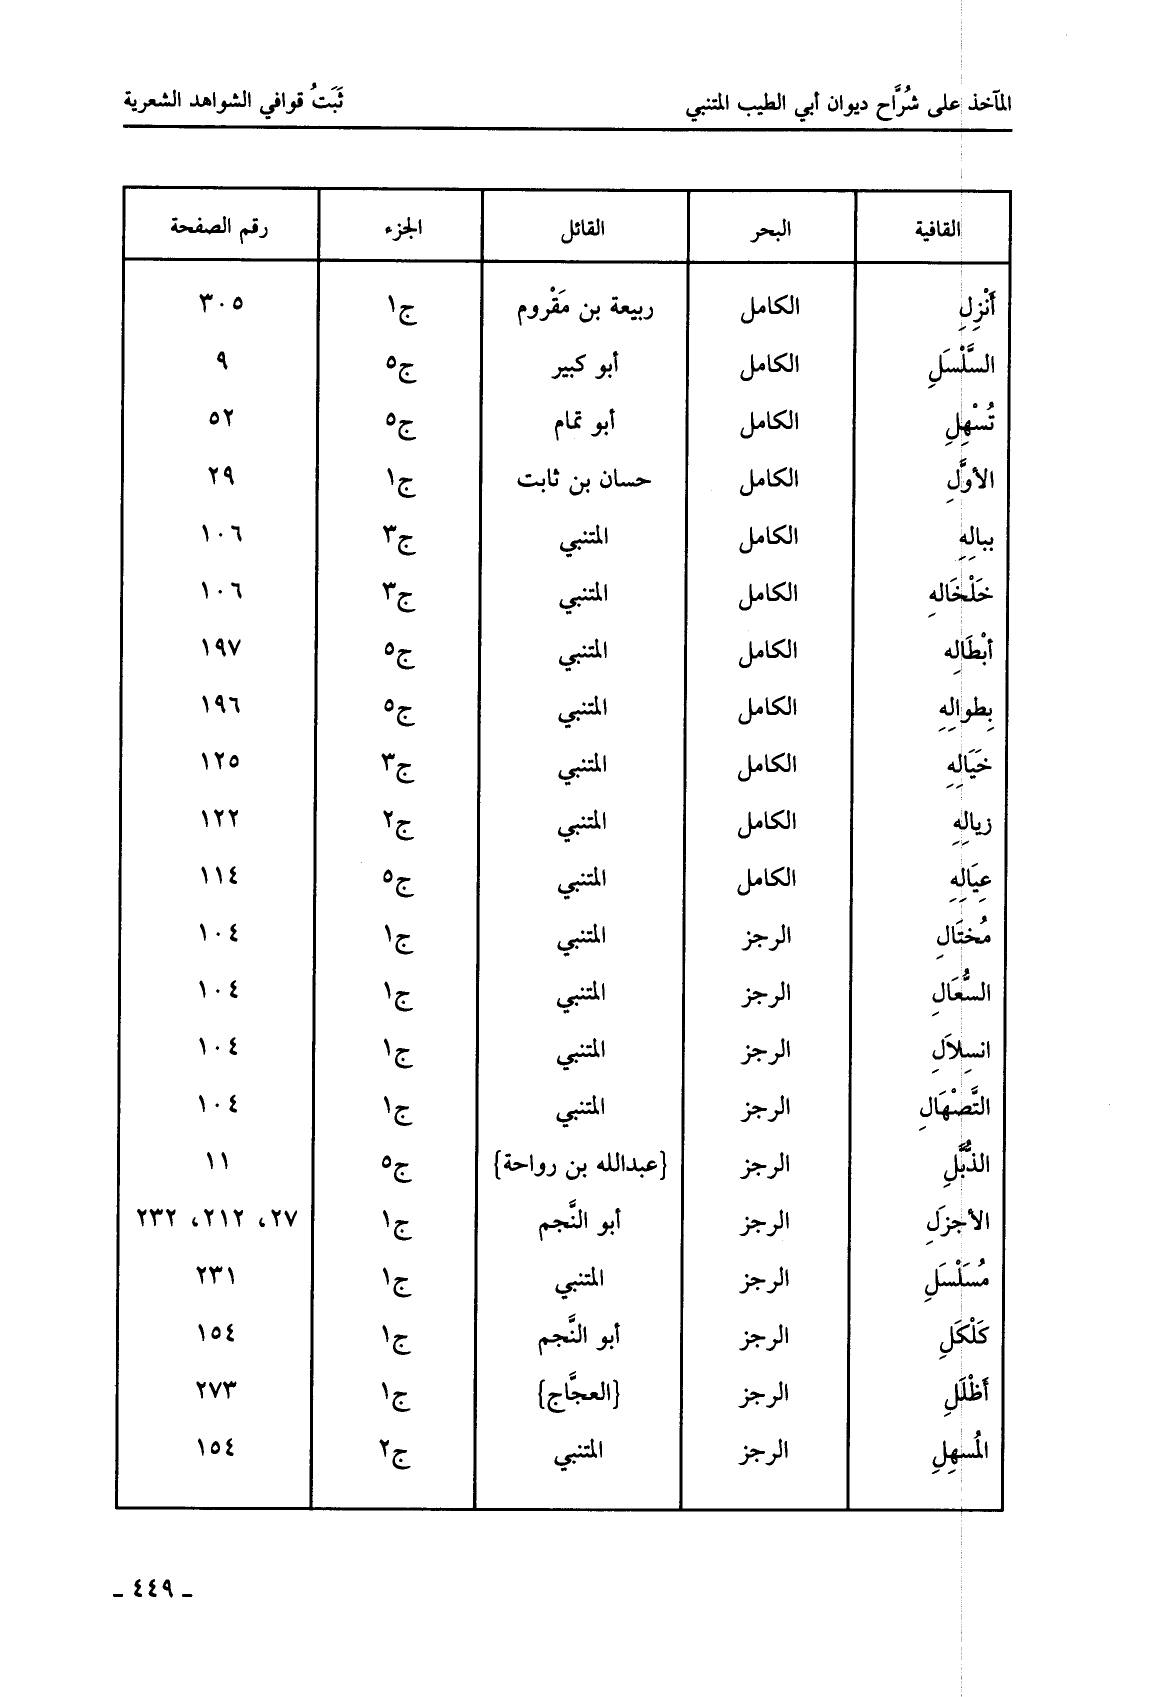 المآخذ على شُرَّاح ديوان أبي الطيب المتنبي ثَبَتُ قوافي الشواهد الشعرية
القافية البحر القائل الجزء رقم الصفحة
أَنْزِلِ الكامل ربيعة بن مَقْروم ج١ ٣٠٥
السَّلْسَلِ الكامل أبو كبير ج٥ ٩
تُسْهِلِ الكامل أبو تمام ج٥ ٥٢
الأوَّلِ الكامل حسان بن ثابت ج١ ٢٩
ببالِهِ الكامل المتنبي ج٣ ١٠٦
خَلْخَالهِ الكامل المتنبي ج٣ ١٠٦
أبْطَالِه الكامل المتنبي ج٥ ١٩٧
بِطوالِهِ الكامل المتنبي ج٥ ١٩٦
خَيَالِهِ الكامل المتنبي ج٣ ١٢٥
زيالِهِ الكامل المتنبي ج٢ ١٢٢
عِيَالِهِ الكامل المتنبي ج٥ ١١٤
مُختَالِ الرجز المتنبي ج١ ١٠٤
السُّعَالِ الرجز المتنبي ج١ ١٠٤
انسِلاَلِ الرجز المتنبي ج١ ١٠٤
التَّصْهَالِ الرجز المتنبي ج١ ١٠٤
الذُّبَّلِ الرجز {عبدالله بن رواحة} ج٥ ١١
الأجزَلِ الرجز أبو النَّجم ج١ ٢٧، ٢١٢، ٢٣٢
مُسَلْسَلِ الرجز المتنبي ج١ ٢٣١
كَلْكَلِ الرجز أبو النَّجم ج١ ١٥٤
أَظْلَلِ الرجز {العجَّاج} ج١ ٢٧٣
المُسهِلِ الرجز المتنبي ج٢ ١٥٤
ـ ٤٤٩ ـ